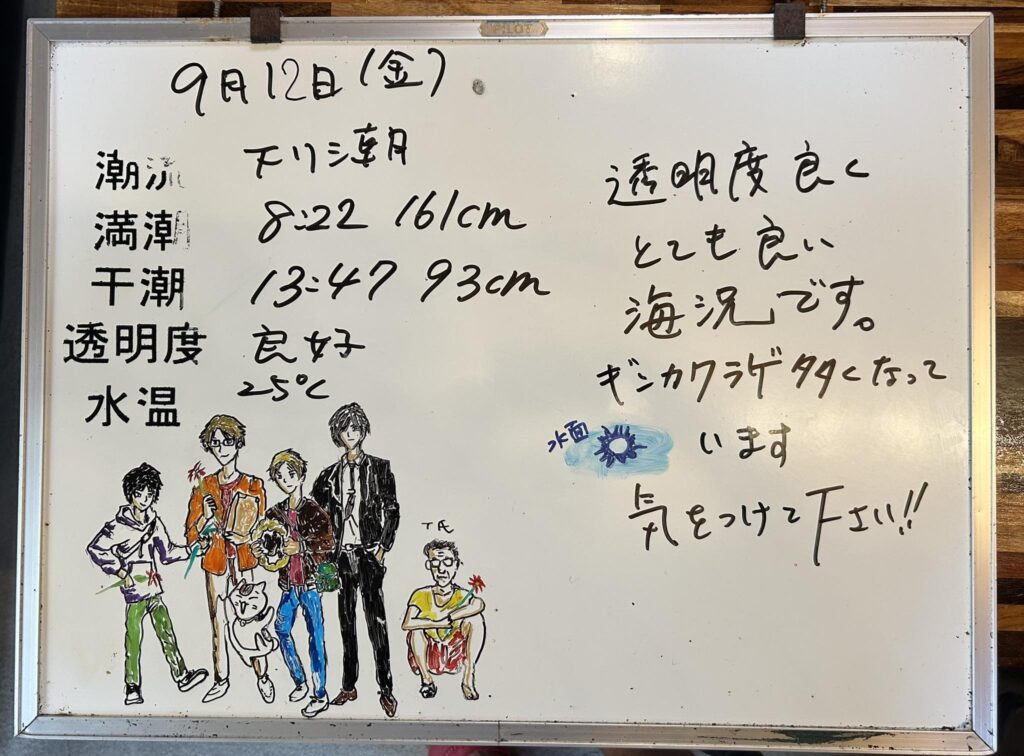 PILOT
9月12日(金)
潮流 下リ潮
満潮 8:22 161cm
干潮 13:47 93cm
透明度 良好
水温 25℃
透明度良く
とても良い
海況です。
ギンカクラゲ多くなって
水面
います
気をつけて下さい!!
T氏